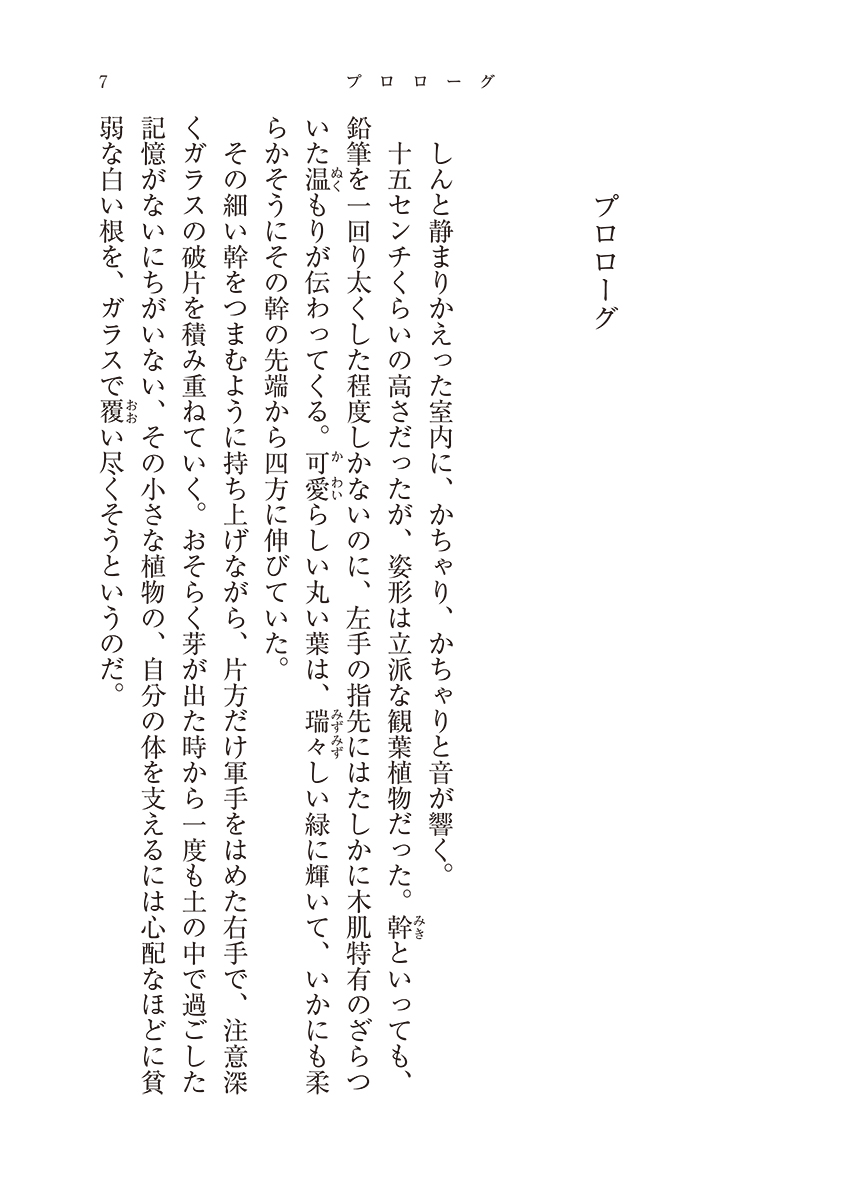 7
プロローグ
プロローグ
しんと静まりかえった室内に、かちゃり、かちゃりと音が響く。
十五センチくらいの高さだったが、姿形は立派な観葉植物だった。幹といっても、
みき
鉛筆を一回り太くした程度しかないのに、左手の指先にはたしかに木肌特有のざらつ
いた温もりが伝わってくる。可愛らしい丸い葉は、瑞々しい緑に輝いて、いかにも柔
ぬく
かわい
みずみず
らかそうにその幹の先端から四方に伸びていた。
その細い幹をつまむように持ち上げながら、片方だけ軍手をはめた右手で、注意深
くガラスの破片を積み重ねていく。おそらく芽が出た時から一度も土の中で過ごした
記憶がないにちがいない、その小さな植物の、自分の体を支えるには心配なほどに貧
弱な白い根を、ガラスで覆い尽くそうというのだ。
おお